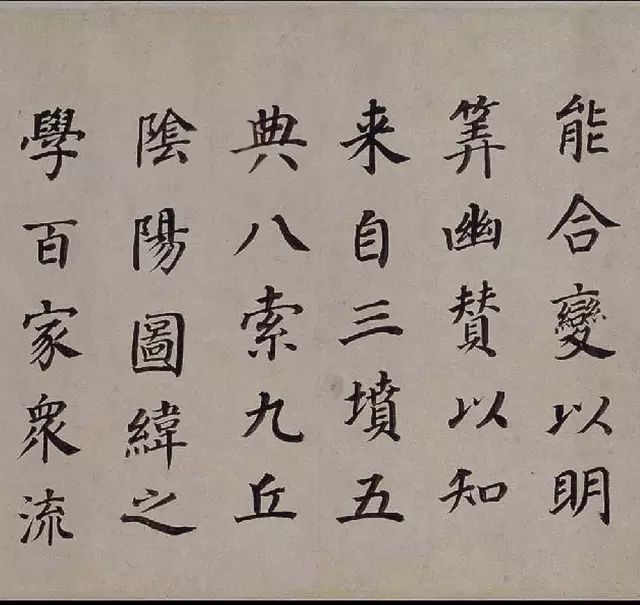 能合變以明
筭幽贊以知
来自三墳五
典八索九丘
陰陽圖緯之
學百家衆流